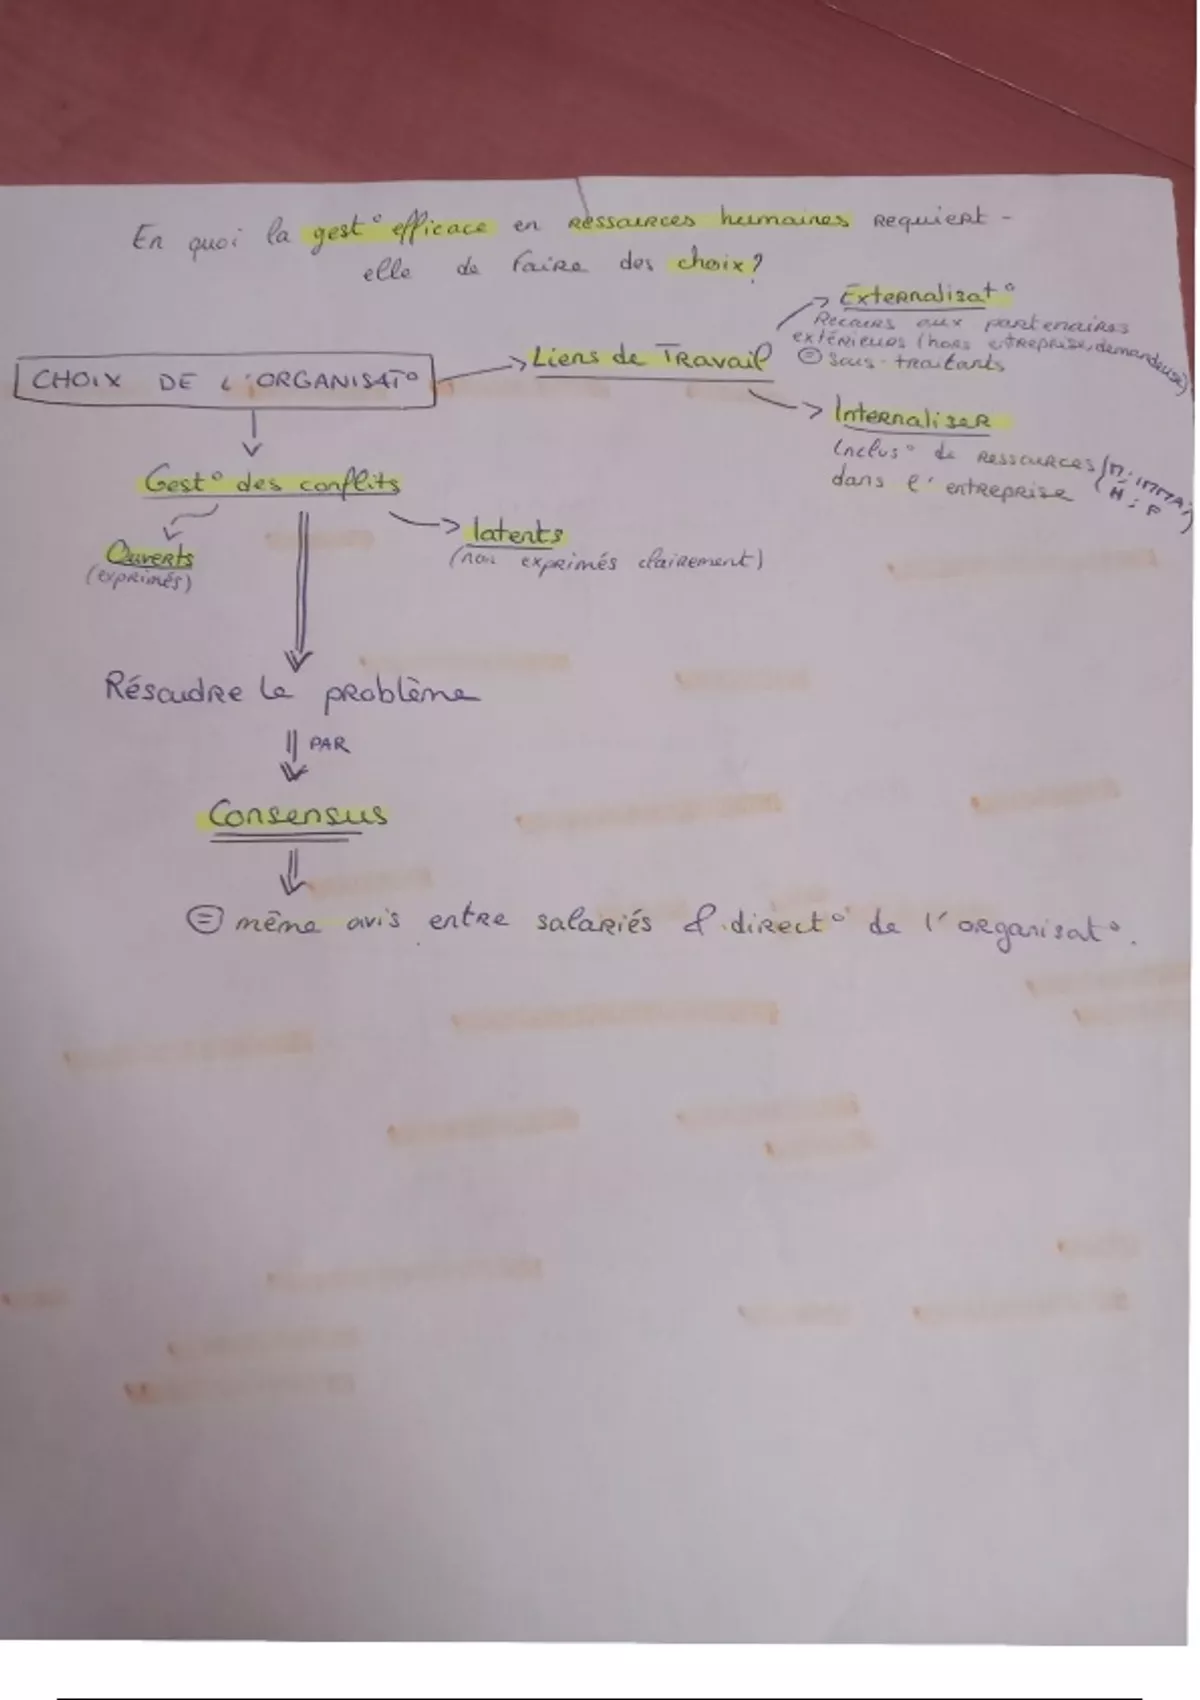 En quoi la gest° efficace en ressources humaines requiert-
elle de faire des choix?
Externalisat°
Recours aux partenaires
extérieurs (hors entreprise demandeuse)
= sous-traitants
Liens de Travail
CHOIX DE L'ORGANISAT°
Internaliser
Inclus° de ressources (M; IMMA;
dans l'entreprise H; F)
Gest° des conflits
Ouverts
(exprimés)
latents
(non exprimés clairement)
Résoudre le problème
PAR
Consensus
= même avis entre salariés & direct° de l'organisat°.